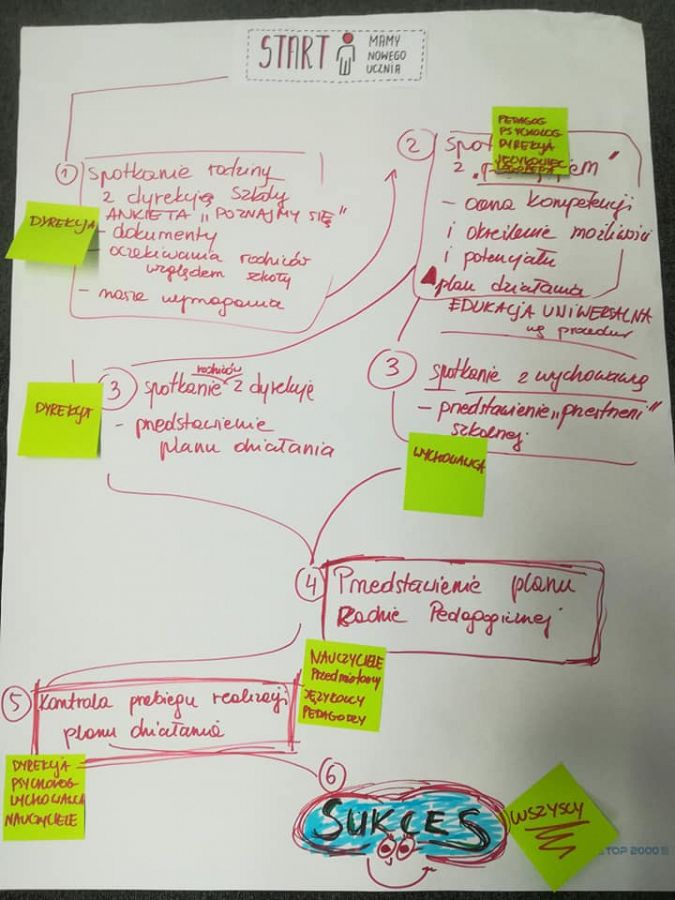 START
MAMY
NOWEGO
UCZNIA
1
spotkanie rodziny
z dyrekcją szkoły
ANKIETA „POZNAJMY SIĘ"
- dokumenty
oczekiwania rodziców
względem szkoły
- nasze wymagania
DYREKCJA
2
PEDAGOG
PSYCHOLOG
DYREKCJA
JĘZYKOWIEC
LOGOPEDA
spot
z „
- ocena kompetencji
i określenie możliwości
i potencjału
plan działania
EDUKACJA UNIWERSALNA
wg procedur
3
rodziców
spotkanie z dyrekcję
- przedstawienie
planu działania
DYREKCJA
3
spotkanie z wychowawcą
- przedstawienie „przestrzeni"
szkolnej
WYCHOWAWCA
4
Przedstawienie planu
Radnie Pedagogicznej
NAUCZYCIELE
Przedmiotowy
JĘZYKOWCY
PEDAGODZY
5
Kontrola przebiegu realizacji
planu działania
DYREKCJA
PSYCHOLOG
WYCHOWAWCA
NAUCZYCIELE
6
SUKCES
WSZYSCY
TOP 2000